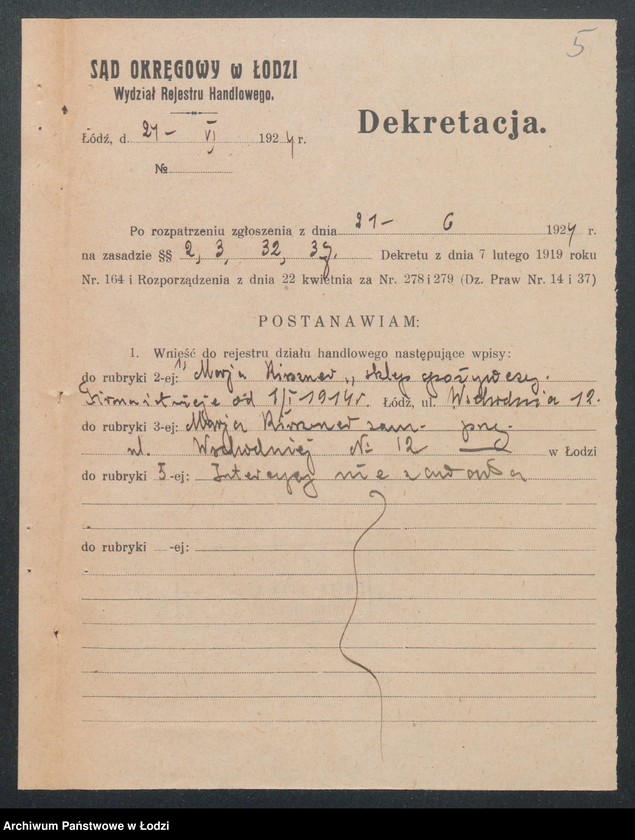 5
SĄD OKRĘGOWY w ŁODZI
Wydział Rejestru Handlowego.
Dekretacja.
Łódź, d. 21 - VI 1924 r.
№
Po rozpatrzeniu zgłoszenia z dnia 21 - 6 1924 r.
na zasadzie §§ 2, 3, 32, 37. Dekretu z dnia 7 lutego 1919 roku
Nr. 164 i Rozporządzenia z dnia 22 kwietnia za Nr. 278 i 279 (Dz. Praw Nr. 14 i 37)
POSTANAWIAM:
1. Wnieść do rejestru działu handlowego następujące wpisy:
do rubryki 2-ej: 1) "Marja Kirszner", sklep spożywczy.
Firma istnieje od 1/I 1914 r. Łódź, ul. Wschodnia 12.
do rubryki 3-ej: Marja Kirszner zam. przy
ul. Wschodniej № 12 w Łodzi
do rubryki 5-ej: Intercyzy nie zawarła
do rubryki -ej:
Archiwum Państwowe w Łodzi